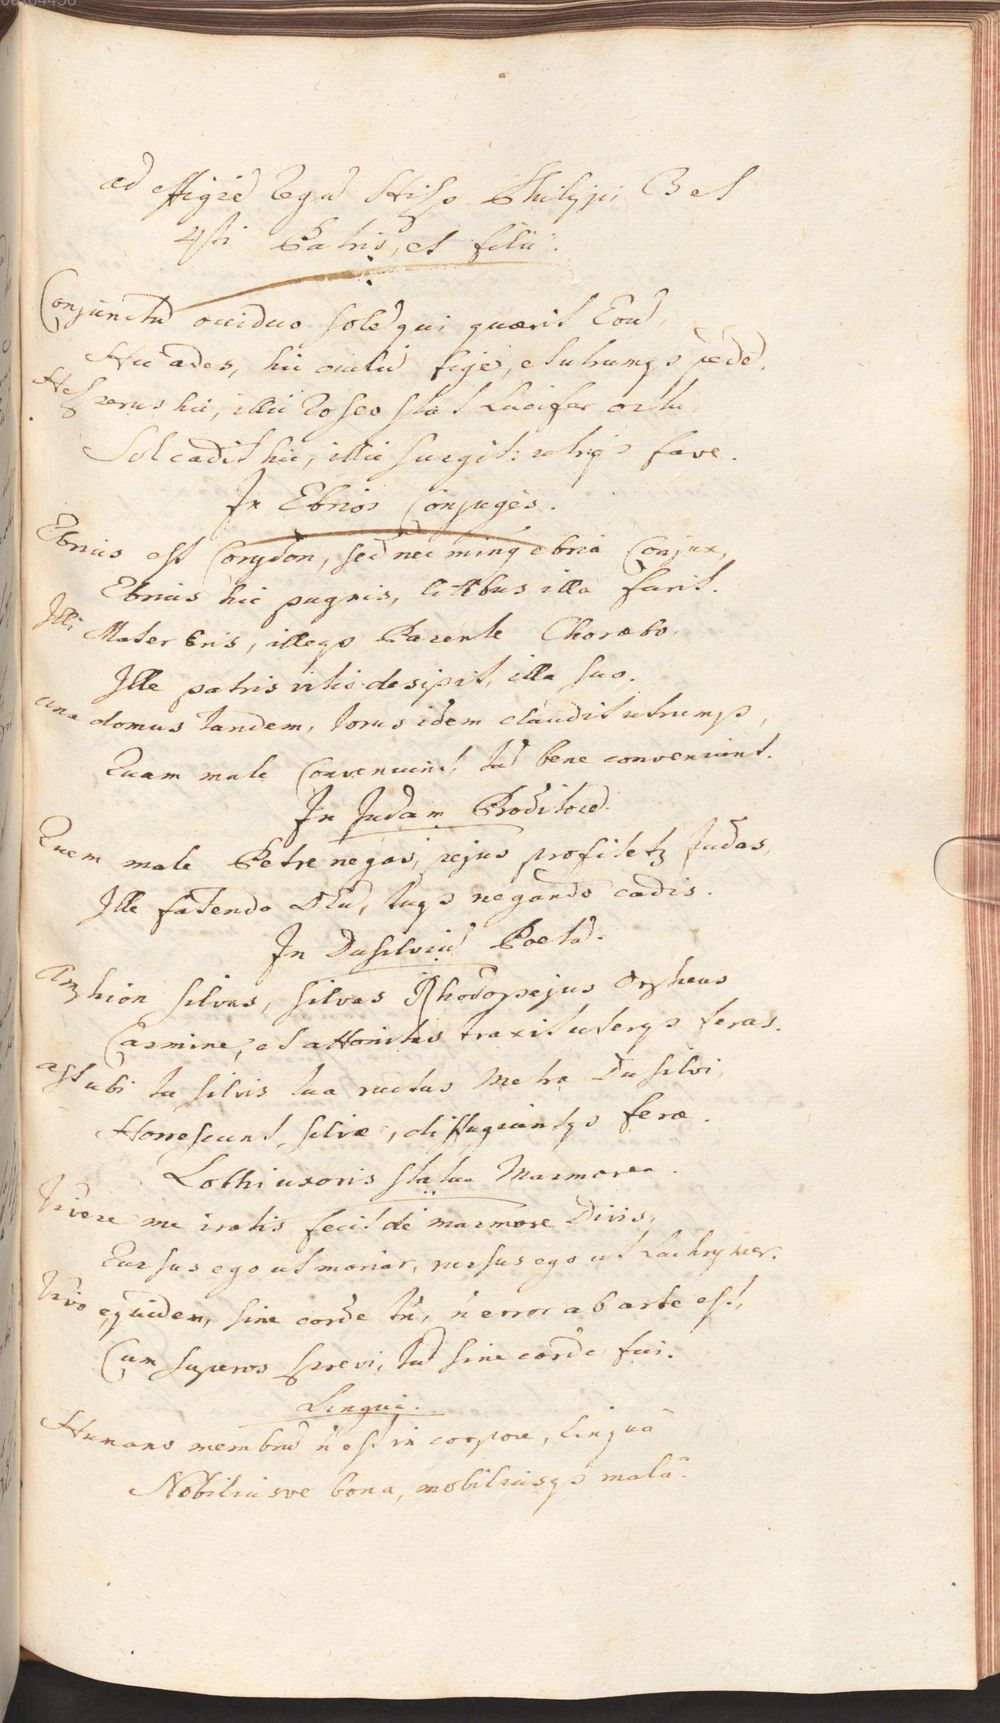 ad effigiẽ Regũ Hisp Philippi 3 et
4ti Patris, et filii.
Conjunctũ occiduo solẽ qui quærit Eoũ,
Huc ades, hic oculũ fige, et utrumqꝫ pedẽ.
Hesperus hic, illic roseo stat Lucifer ortu,
Sol cadit hic, illic surgit: utriqꝫ fave.
In Ebrios Conjuges.
Ebrius est Corydon, sed nec minꝰ ebria Conjux,
Ebrius hic pugnis, litibus illa furit.
Illi Mater Eris, illeqꝫ Parente Choræbo,
Ille patris vitio desipit, illa suo.
una domus tandem, torus idem claudit utrumqꝫ,
Quam male Conveniunt, tũ bene conveniunt.
In Judam Proditorẽ.
Quem male Petre negas, pejus profitetꝫ Judas,
Ille fatendo Dẽũ, tuqꝫ negando cadis.
In Dusilviũ Poetã.
Amphion silvas, silvas Rhodopejus Orpheus
Carmine, et attonitas traxit uterqꝫ feras.
ast ubi tu silvis tua ructas metra Dusilvi,
Horrescunt silvæ, diffugiuntqꝫ feræ.
Lothi uxoris statua Marmorea.
Vivere me iratis fecit de marmore Divis,
Rursus ego ut moriar, rursus ego ut Lachrymer.
Vivo equidem, sine corde tñ, ñ error ab arte est,
Cum superos sprevi, tũ sine corde fui.
Lingua.
Humano membrũ ñ est in corpore, lingua
Nobiliusve bona, mobiliusqꝫ mala.